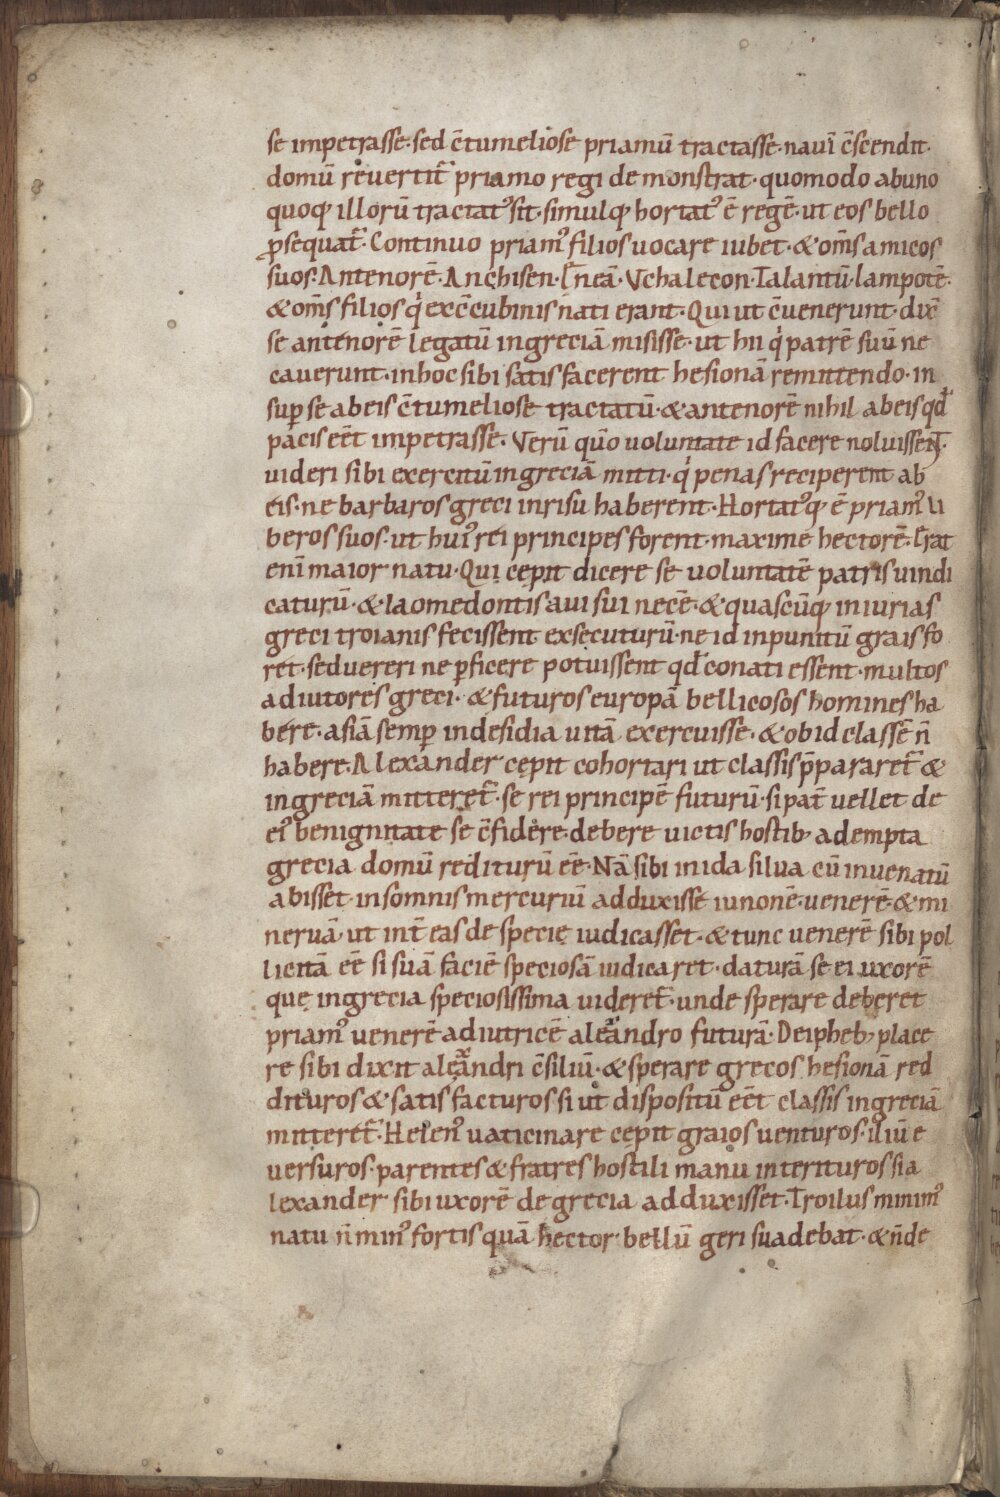 se impetrasse· sed c̄tumeliose priamū tractasse· nauī c̄scendit·
domū reuertit̄ priamo regi demonstrat· quomodo abuno
quoq; illorū tractatꝰ sit· simulq; hortatꝰ ē regē· ut eos bello
ꝑsequat̄· Continuo priamꝰ filios uocare iubet· & om̄s amicos
suos· Antenorē· Anchisen· Ęneā· Vchalecon· Talantū· lampotē·
& om̄s filios qͥ exc̄cubinis nati erant· Qui ut c̄uenerunt· dix̄
se antenorē legatū ingreciā misisse· ut hii qͥ patrē suū ne
cauerunt· inhoc sibi satis facerent hesionā remittendo· in
suꝑ se abeis c̄tumeliose tractatū· & antenorē nihil abeis qđ
pacis eēt impetrasse· Verū qūo uoluntate id facere noluissent·
uideri sibi exercitū ingreciā mitti· qͥ penas reciperent ab
eis· ne barbaros greci inrisu haberent· Hortatꝰq; ē priamꝰ li
beros suos· ut huiꝰ rei principes forent· maxime hectorē· Erat
enī maior natu· Qui cępit dicere se uoluntatē patris uindi
caturū· & laomedontis aui sui necē· & quascūq; iniurias
greci troianis fecissent exsecuturū· ne id inpunitū grais fo
ret· sed uereri ne ꝑficere potuissent qđ conati essent· multos
adiutores greci· & futuros europā bellicosos homines ha
bere· asiā semꝑ indesidia uitā exercuisse· & obid classē n̄
habere· Alexander cępit cohortari ut classis p̄pararet̄ &
ingreciā mitteret̄· se rei principē futurū· si pat̄ uellet de
eiꝰ benignitate se c̄fidere debere uictis hostib; adempta
grecia domū rediturū eē· Nā sibi inida silua cū inuenatū
abisset· insomnis mercuriū adduxisse iunonē· uenerē· & mi
neruā· ut int̄ eas de specię iudicasset· & tunc uenerē sibi pol
licitā eē si suā faciē speciosā iudicaret· daturā se ei uxorē
quę ingrecia speciosissima uideret̄· unde sperare deberet
priamꝰ uenerē adiutricē alexandro futurā· Deipheb; place
re sibi dixit alexandri c̄siliū· & sperare grecos hesionā red
dituros & satis facturos si ut dispositū eēt classis ingreciā
mitteret̄· Helenꝰ uaticinare cępit graios uenturos· iliū e
uersuros· parentes & fratres hostili manu interituros si a
lexander sibi uxorē de grecia adduxisset· Troilus minimꝰ
natu n̄ minꝰ fortis quā hector bellū geri suadebat· & n̄ de